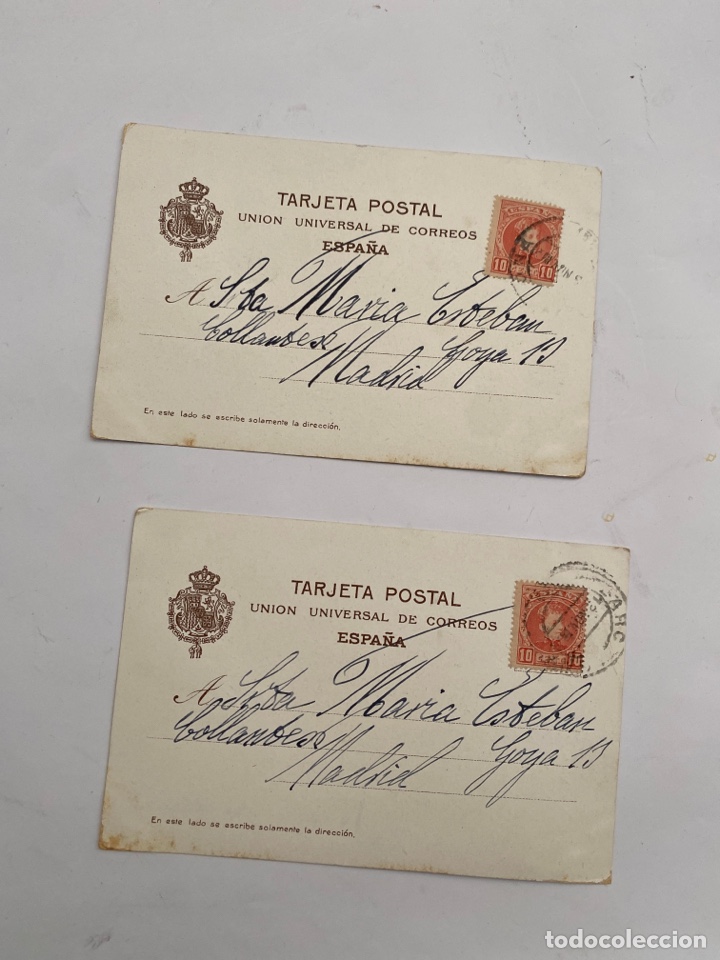 TARJETA POSTAL
UNION UNIVERSAL DE CORREOS
ESPAÑA
10 10
A Srta Maria Esteban
Collantes Goya 13
Madrid
En este lado se escribe solamente la dirección.
TARJETA POSTAL
UNION UNIVERSAL DE CORREOS
ESPAÑA
10 10
BARC
A Srta Maria Esteban
Collantes Goya 13
Madrid
En este lado se escribe solamente la dirección.
todocoleccion